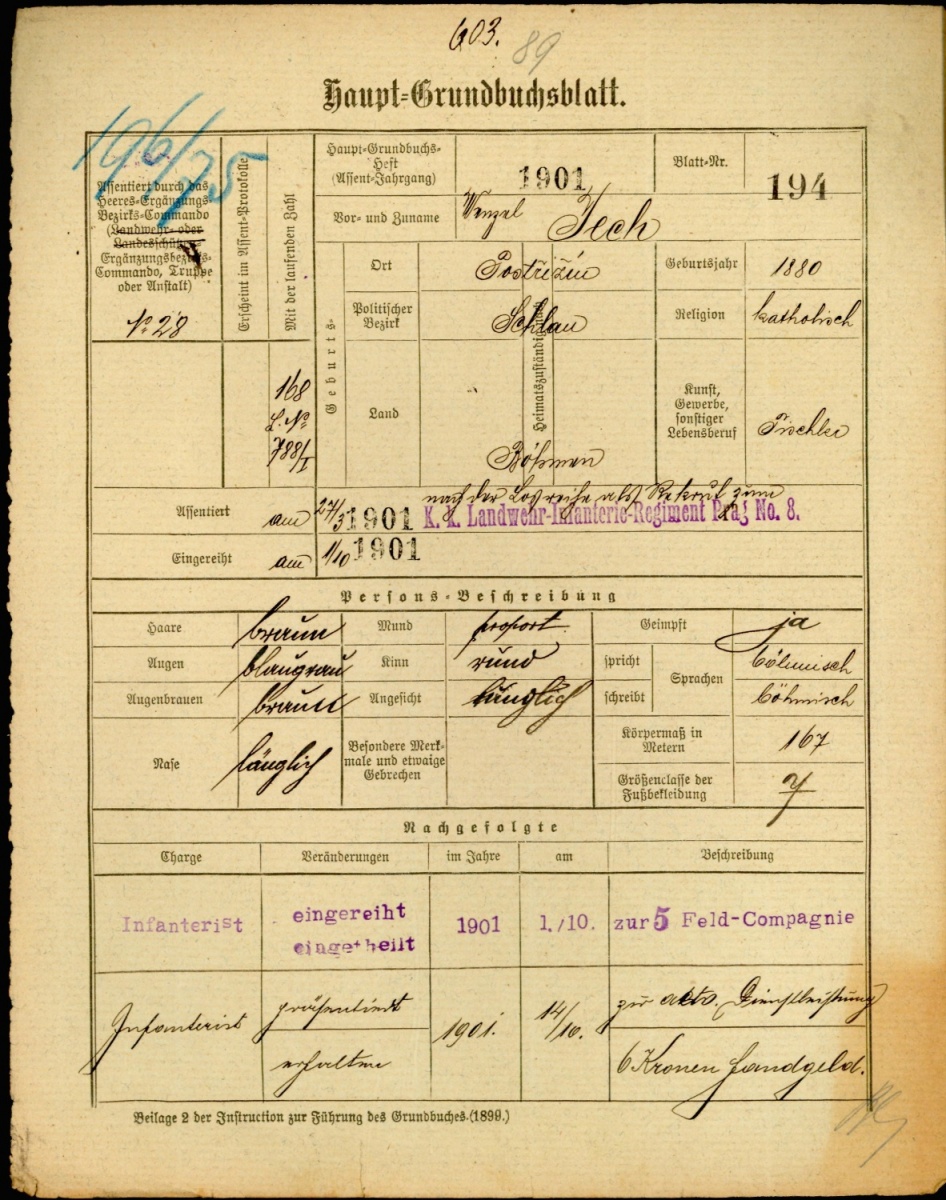 603.
89
Haupt-Grundbuchsblatt.
196/75
Assentiert durch das
Heeres-Ergänzungs-
Bezirks-Commando
(Landwehr- oder
Landesschützen-
Ergänzungsbezirks-
Commando, Truppe
oder Anstalt)
No 28
Erscheint im Assent-Protokolle
Mit der laufenden Zahl
168
L. No
788/I
Haupt-Grundbuchs-
Heft
(Assent-Jahrgang)
1901
Blatt-Nr.
194
Vor- und Zuname
Wenzel Jech
Geburts-
Ort
Postřižín
Politischer
Bezirk
Schlau
Land
Böhmen
Heimatszuständigkeits-
Geburtsjahr
1880
Religion
katholisch
Kunst,
Gewerbe,
sonstiger
Lebensberuf
Tischler
Assentiert
am 27/3 1901
nach der Losreihe als Rekrut zum
K. k. Landwehr-Infanterie-Regiment Prag No. 8.
Eingereiht
am 1/10 1901
Persons-Beschreibung
Haare braun
Mund proport.
Geimpft ja
Augen blaugrau
Kinn rund
spricht
Sprachen
böhmisch
Augenbrauen braun
Angesicht länglich
schreibt
böhmisch
Nase länglich
Besondere Merk-
male und etwaige
Gebrechen
Körpermaß in
Metern
167
Größenclasse der
Fußbekleidung
7
Nachgefolgte
Charge Veränderungen im Jahre am Beschreibung
Infanterist eingereiht 1901 1./10. zur 5 Feld-Compagnie
eingetheilt
Infanterist präsentiert 1901. 14/10. zur activ. Dienstleistung
erhalten 6 Kronen Handgeld.
Beilage 2 der Instruction zur Führung des Grundbuches (1899.)